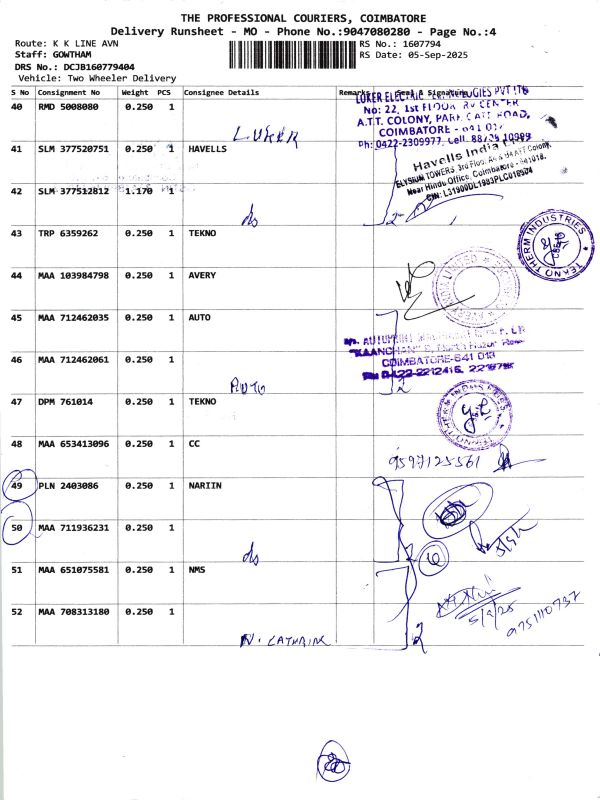 THE PROFESSIONAL COURIERS, COIMBATORE
Delivery Runsheet - MO - Phone No.:9047080280 - Page No.:4
Route: K K LINE AVN
Staff: GOWTHAM
DRS No.: DCJB160779404
Vehicle: Two Wheeler Delivery
RS No.: 1607794
RS Date: 05-Sep-2025
S No Consignment No Weight PCS Consignee Details Remarks Seal & Signature
40 RMD 5008080 0.250 1
LUKER
LUKER ELECTRIC TECHNOLOGIES PVT LTD
No: 22, 1st FLOOR, RV CENTER
A.T.T. COLONY, PARK GATE ROAD,
COIMBATORE - 641 01
Ph: 0422-2309977, Cell:
41 SLM 377520751 0.250 1 HAVELLS
Havells India
ELYSIUM TOWERS 3rd Floor, ATT Colony,
Near Hindu Office, Coimbatore - 641018.
CIN: L31900DL1983PLC016304
42 SLM 377512812 1.170 1
ds
2
43 TRP 6359262 0.250 1 TEKNO
TEKNO THERM INDUSTRIES
44 MAA 103984798 0.250 1 AVERY
45 MAA 712462035 0.250 1 AUTO
"KAANCHAN" 9,
COIMBATORE-641 018
46 MAA 712462061 0.250 1
AUTO
2
47 DPM 761014 0.250 1 TEKNO
TEKNO THERM INDUSTRIES
48 MAA 653413096 0.250 1 CC
9597125561
49 PLN 2403086 0.250 1 NARIIN
50 MAA 711936231 0.250 1
ds
5/9/25
51 MAA 651075581 0.250 1 NMS
5/9/25
9751110737
52 MAA 708313180 0.250 1
N. CATHRINE
2